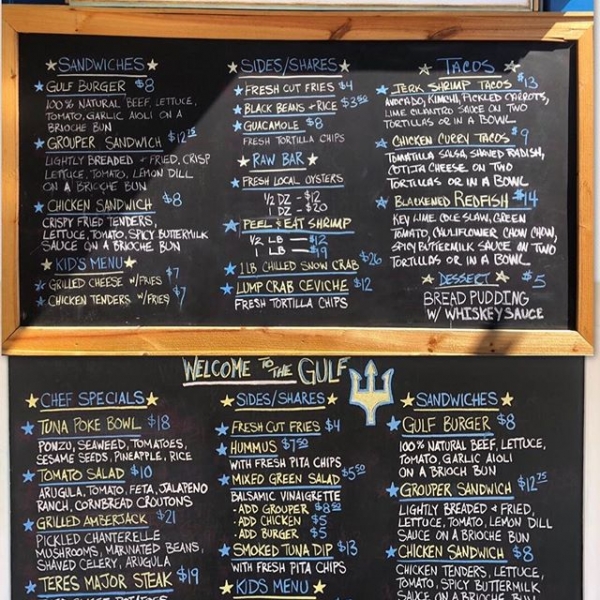 SANDWICHES
GULF BURGER $8
100% NATURAL BEEF, LETTUCE,
TOMATO, GARLIC AIOLI ON A
BRIOCHE BUN
GROUPER SANDWICH $12.75
LIGHTLY BREADED + FRIED, CRISP
LETTUCE, TOMATO, LEMON DILL
ON A BRIOCHE BUN
CHICKEN SANDWICH $8
CRISPY FRIED TENDERS,
LETTUCE, TOMATO, SPICY BUTTERMILK
SAUCE ON A BRIOCHE BUN
KID'S MENU
GRILLED CHEESE W/FRIES $7
CHICKEN TENDERS W/FRIES $7
SIDES/SHARES
FRESH CUT FRIES $4
BLACK BEANS + RICE $3.50
GUACAMOLE $8
FRESH TORTILLA CHIPS
RAW BAR
FRESH LOCAL OYSTERS
1/2 DZ - $12
1 DZ - $20
PEEL & EAT SHRIMP
1/2 LB — $12
1 LB — $19
1 LB CHILLED SNOW CRAB $26
LUMP CRAB CEVICHE $12
FRESH TORTILLA CHIPS
TACOS
JERK SHRIMP TACOS $13
AVOCADO, KIMCHI, PICKLED CARROTS,
LIME CILANTRO SAUCE ON TWO
TORTILLAS OR IN A BOWL
CHICKEN CURRY TACOS $9
TOMATILLA SALSA, SHAVED RADISH,
COTIJA CHEESE ON TWO
TORTILLAS OR IN A BOWL
BLACKENED REDFISH $14
KEY LIME COLE SLAW, GREEN
TOMATO, CAULIFLOWER CHOW CHOW,
SPICY BUTTERMILK SAUCE ON TWO
TORTILLAS OR IN A BOWL
DESSERT $5
BREAD PUDDING
W/ WHISKEY SAUCE
WELCOME TO THE GULF
CHEF SPECIALS
TUNA POKE BOWL $18
PONZU, SEAWEED, TOMATOES,
SESAME SEEDS, PINEAPPLE, RICE
TOMATO SALAD $10
ARUGULA, TOMATO, FETA, JALAPENO
RANCH, CORNBREAD CROUTONS
GRILLED AMBERJACK $21
PICKLED CHANTERELLE
MUSHROOMS, MARINATED BEANS,
SHAVED CELERY, ARUGULA
TERES MAJOR STEAK $19
SIDES/SHARES
FRESH CUT FRIES $4
HUMMUS $7.50
WITH FRESH PITA CHIPS
MIXED GREEN SALAD $5.50
BALSAMIC VINAIGRETTE
· ADD GROUPER $8.50
· ADD CHICKEN $5
· ADD BURGER $5
SMOKED TUNA DIP $13
WITH FRESH PITA CHIPS
KID'S MENU
SANDWICHES
GULF BURGER $8
100% NATURAL BEEF, LETTUCE,
TOMATO, GARLIC AIOLI
ON A BRIOCH BUN
GROUPER SANDWICH $12.75
LIGHTLY BREADED & FRIED,
LETTUCE, TOMATO, LEMON DILL
SAUCE ON A BRIOCHE BUN
CHICKEN SANDWICH $8
CHICKEN TENDERS, LETTUCE,
TOMATO, SPICY BUTTERMILK
SAUCE ON A BRIOCHE BUN